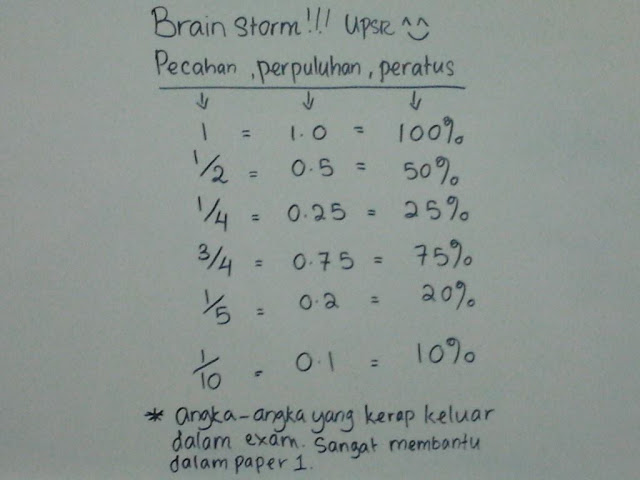 Brain Storm!!! UPSR ^‿^
Pecahan, perpuluhan, peratus
1 = 1.0 = 100%
1/2 = 0.5 = 50%
1/4 = 0.25 = 25%
3/4 = 0.75 = 75%
1/5 = 0.2 = 20%
1/10 = 0.1 = 10%
* angka-angka yang kerap keluar
dalam exam. Sangat membantu
dalam paper 1.